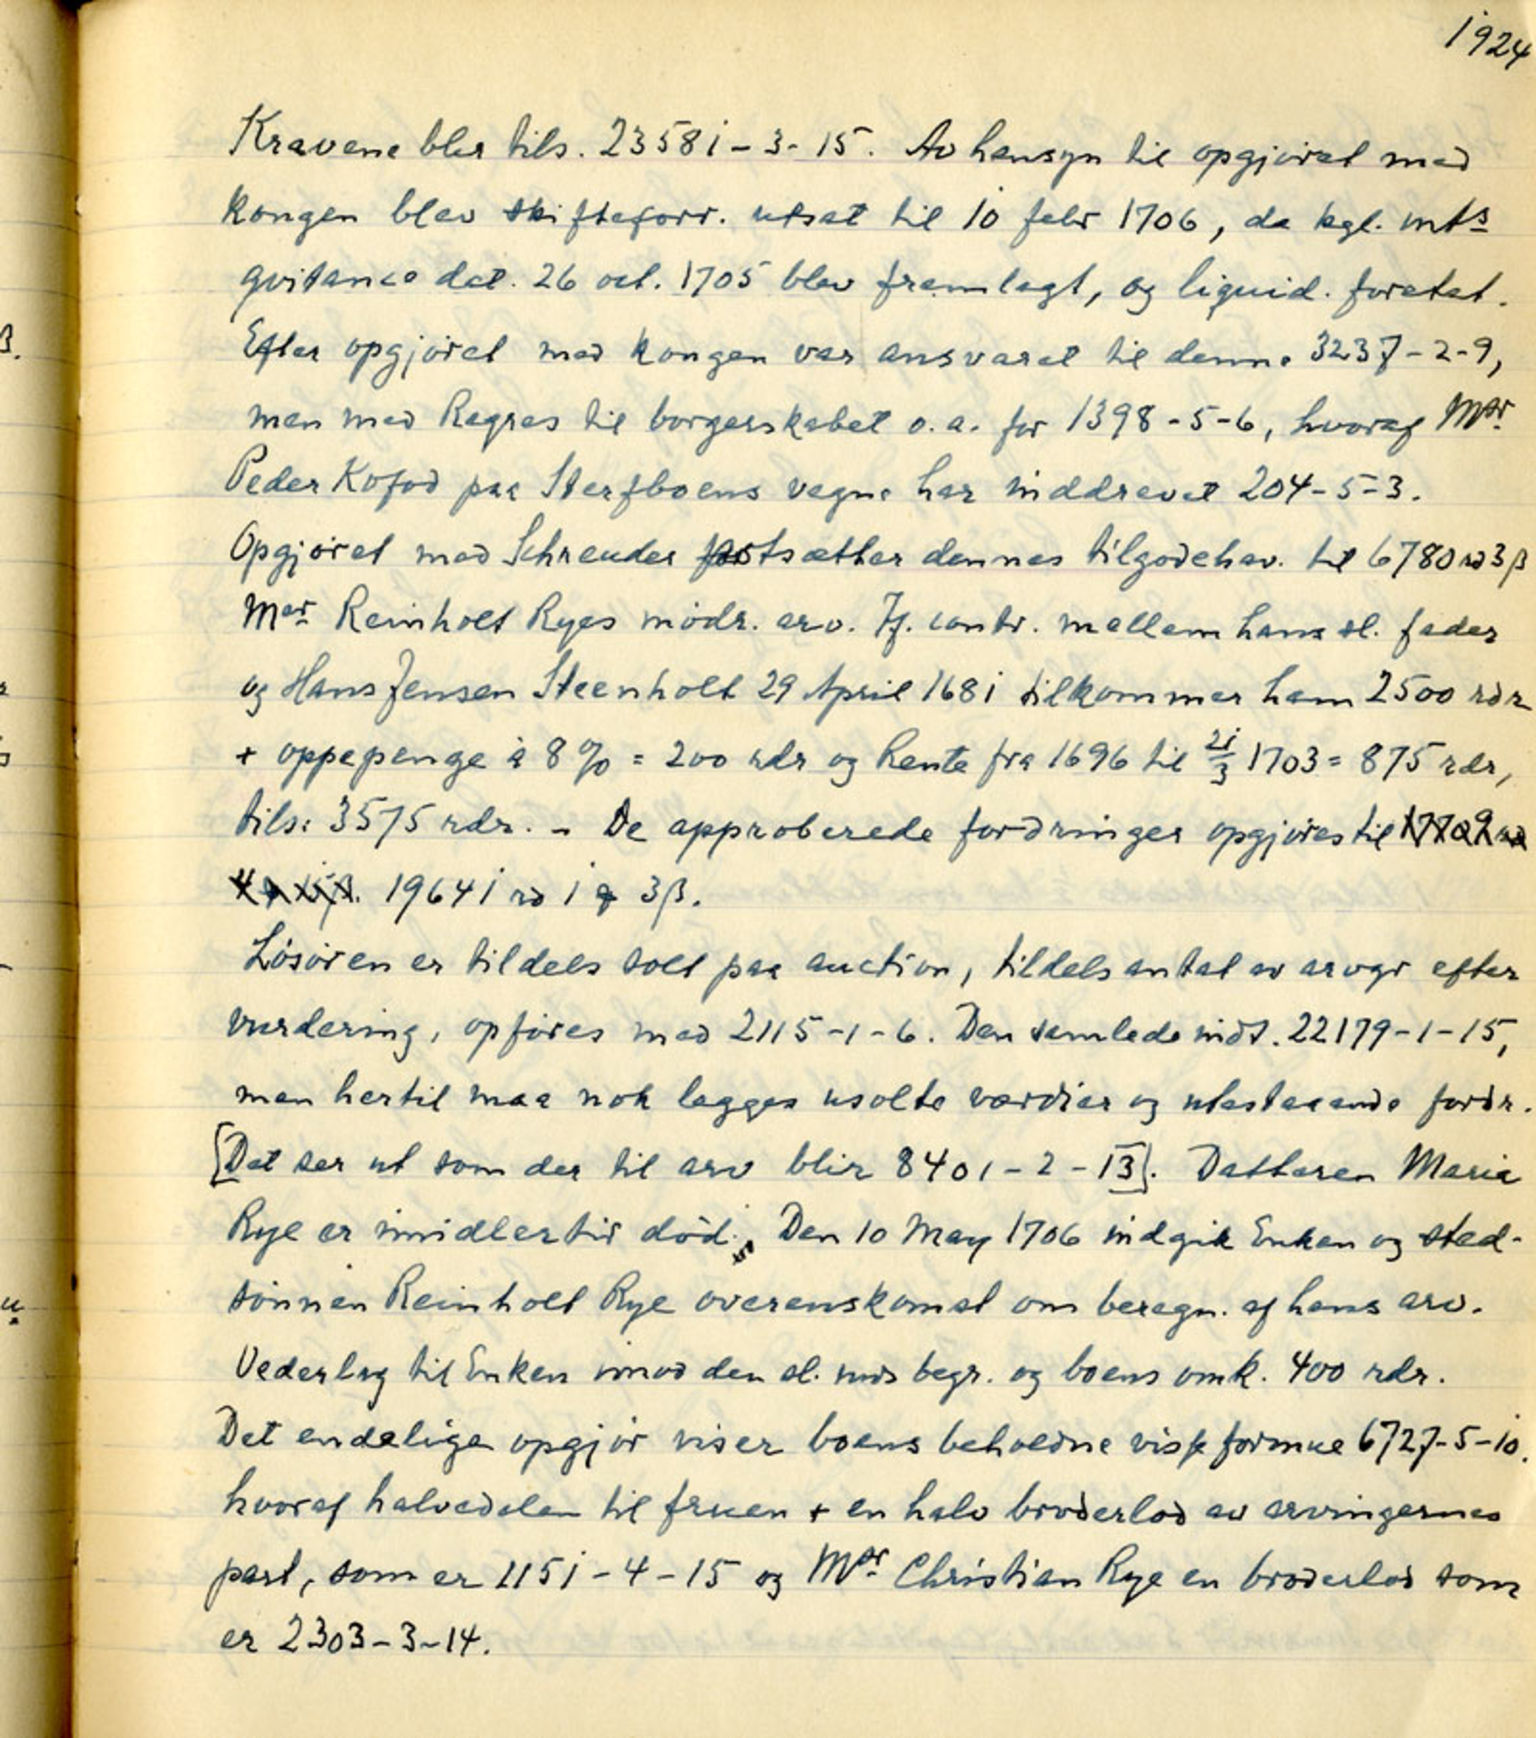 1924
Kravene bler tils. 23581-3-15. Av hensyn til opgjøret med
kongen blev skifteforr. utsat til 10 febr 1706, da kgl. mts
qvitance dat. 26 oct. 1705 blev fremlagt, og liquid. foretat.
Efter opgjøret med kongen var ansvaret til denne 3237-2-9,
men med Regres til borgerskabet o.a. for 1398-5-6, hvoraf Msr.
Peder Kofod paa Sterfboens vegne har inddrevet 204-5-3.
Opgjøret med Schreuder fastsætter dennes tilgodehav. til 6780 rd 3 β
Msr. Reinholt Ryes mødr. arv. Jf. contr. mellem hans sl. fader
og Hans Jensen Steenholt 29 April 1681 tilkommer ham 2500 rdr
+ oppepenge à 8% = 200 rdr og Rente fra 1696 til 21/3 1703 = 875 rdr,
tils: 3575 rdr. - De approberede fordringer opgjøres til
19641 rd 1 q 3β.
Løsøren er tildels solt paa auction, tildels antat av arvgr efter
vurdering, opføres med 2115-1-6. Den samlede indt. 22179-1-15,
men hertil maa nok lægges usolte værdier og utestaaende fordr.
[Det ser ut som der til arv blir 8401-2-13]. Datteren Maria
Rye er imidlertid død. Den 10 May 1706 indgik Enken og sted-
sønnen Reinholt Rye overenskomst om beregn. af hans arv.
Vederlag til Enken imod den sl. mds begr. og boens omk. 400 rdr.
Det endelige opgjør viser boens beholdne visse formue 6727-5-10.
hvoraf halvedelen til fruen + en halv broderlod av arvingernes
part, som er 1151-4-15 og Msr. Christian Rye en broderlod som
er 2303-3-14.
β.